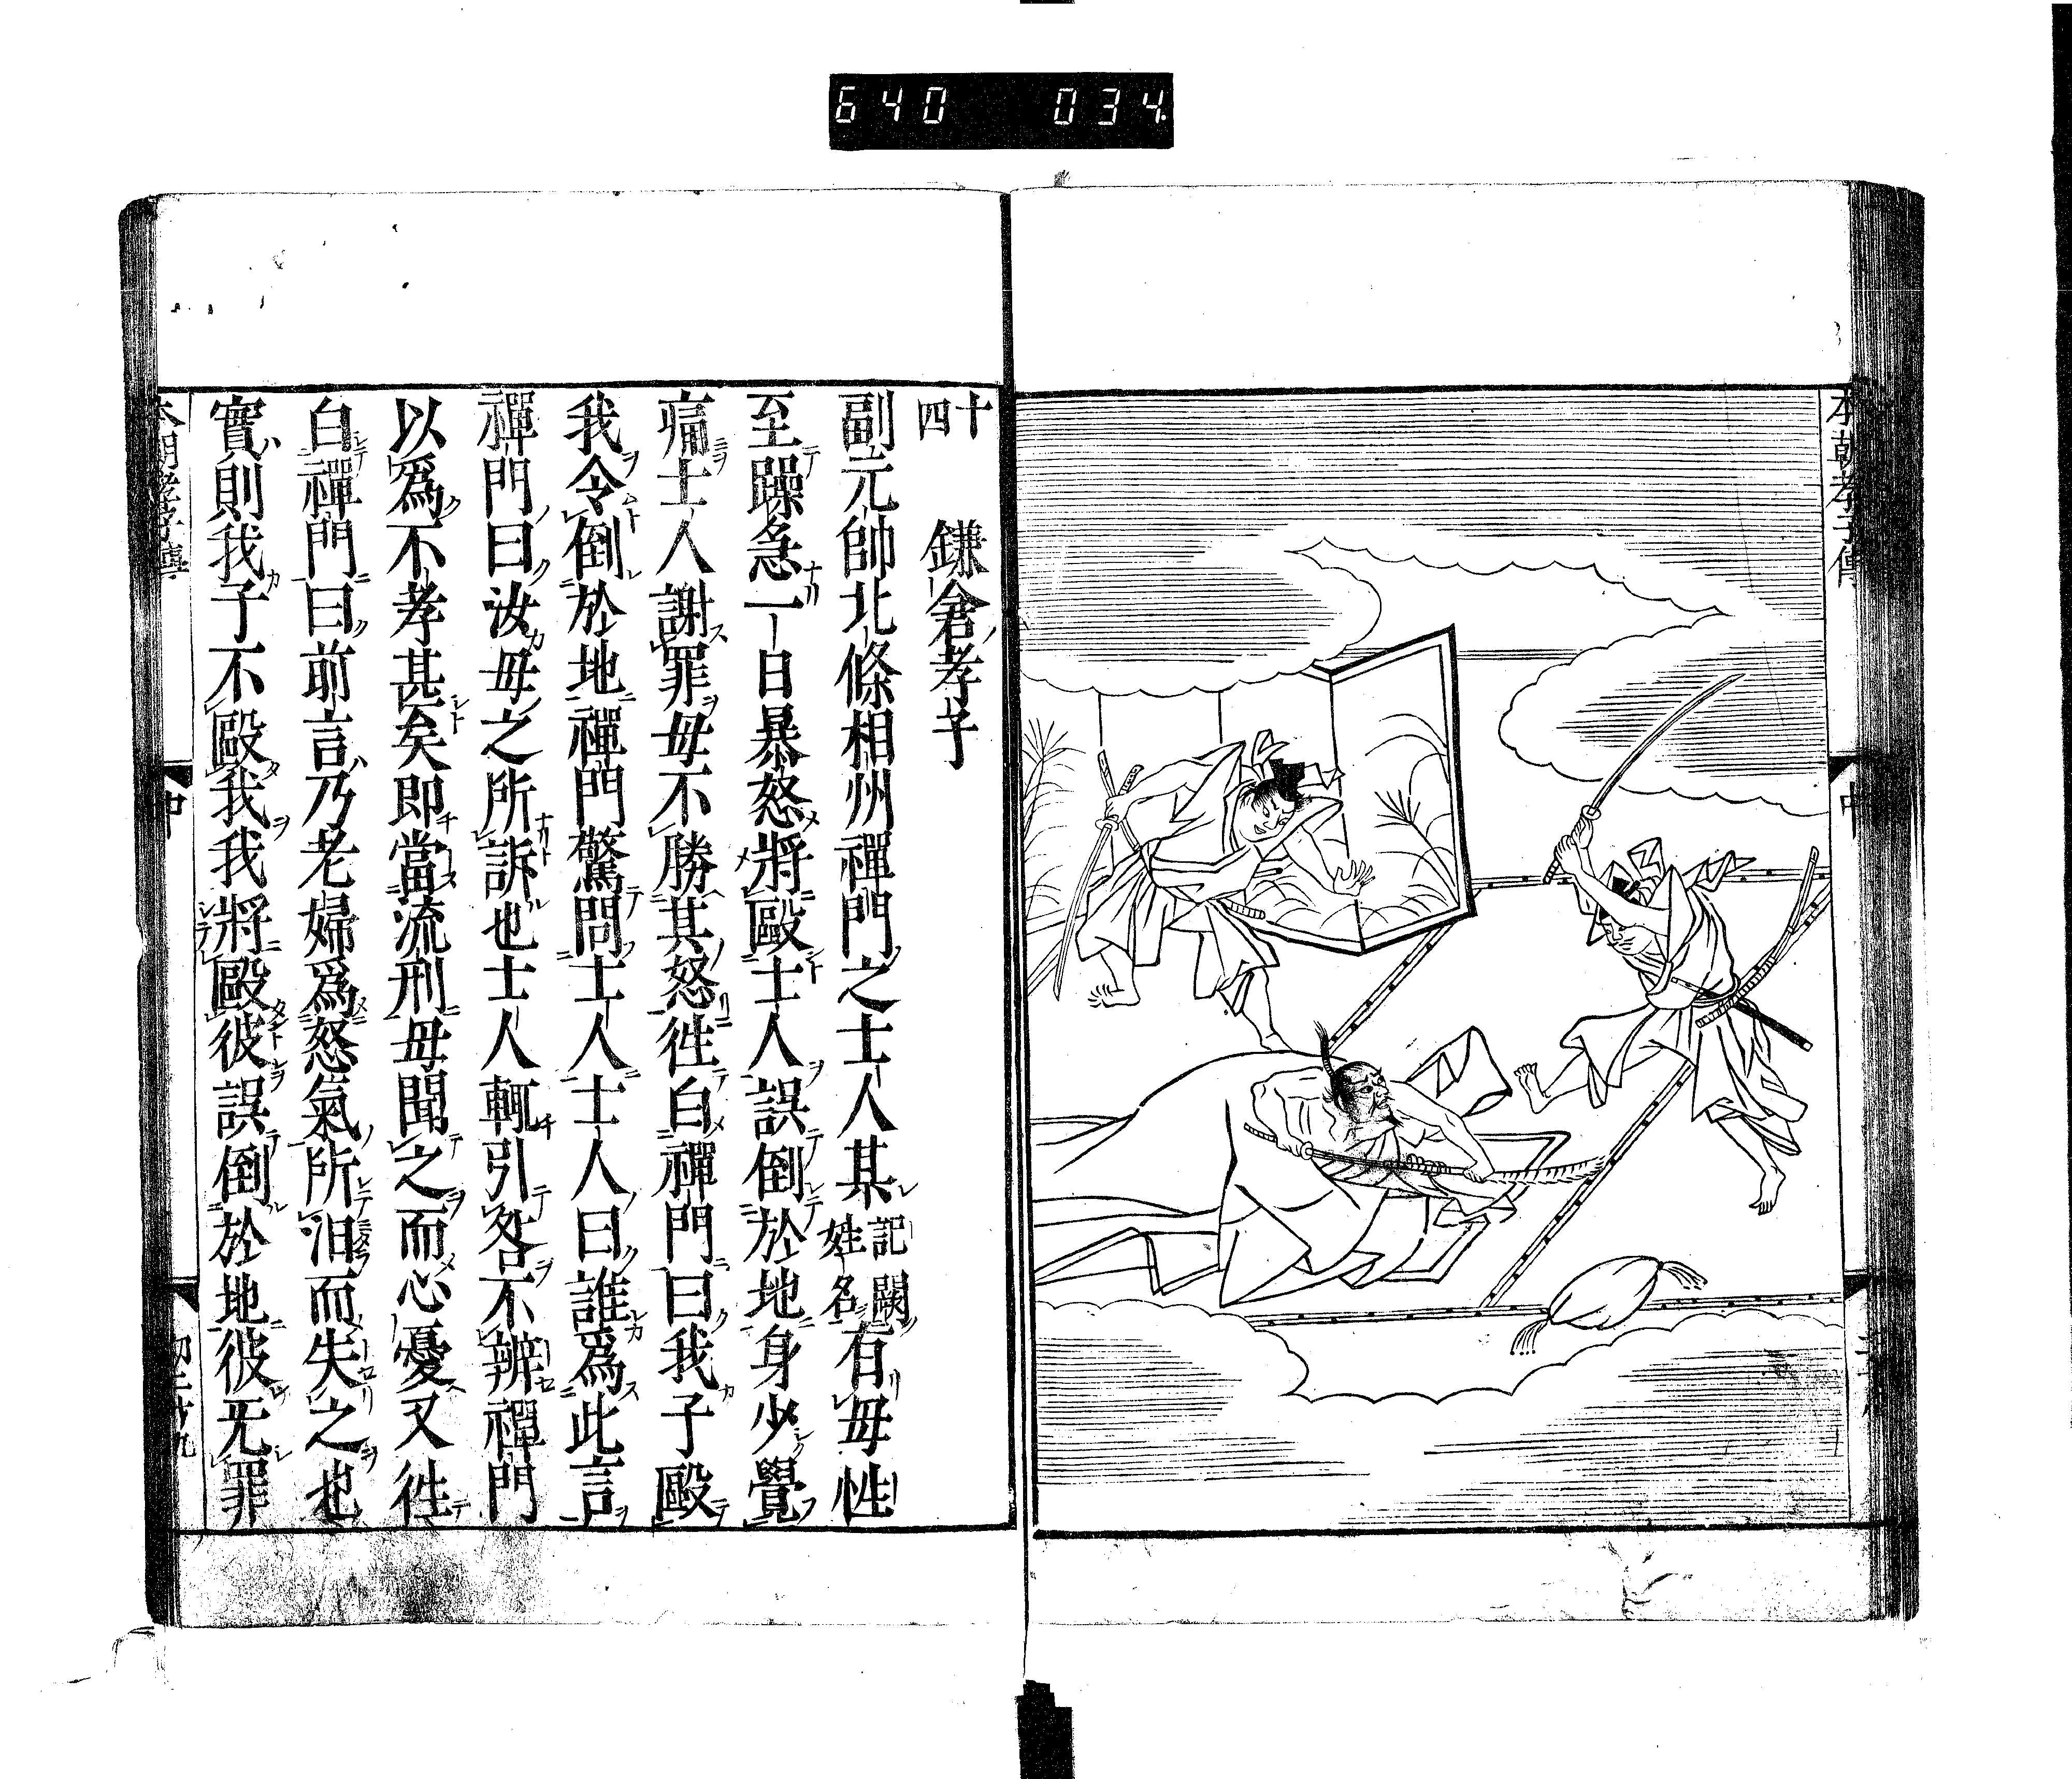 640 034.
本朝孝子傳
中
十四 鎌倉孝子
副元帥北條相州禪門之士人某記闕姓名有母性
至躁急一日暴怒將毆士人誤倒於地身少覺
痛士人謝罪母不勝其怒徃白禪門曰我子毆
我令倒於地禪門驚問士人士人曰誰爲此言
禪門曰汝母之所訴也士人輙引咎不辨禪門
以爲不孝甚矣即當流刑母聞之而心憂又徃
白禪門曰前言乃老婦爲怒氣所汨而失之也
實則我子不毆我我將毆彼誤倒於地彼无罪
本朝孝子傳
中